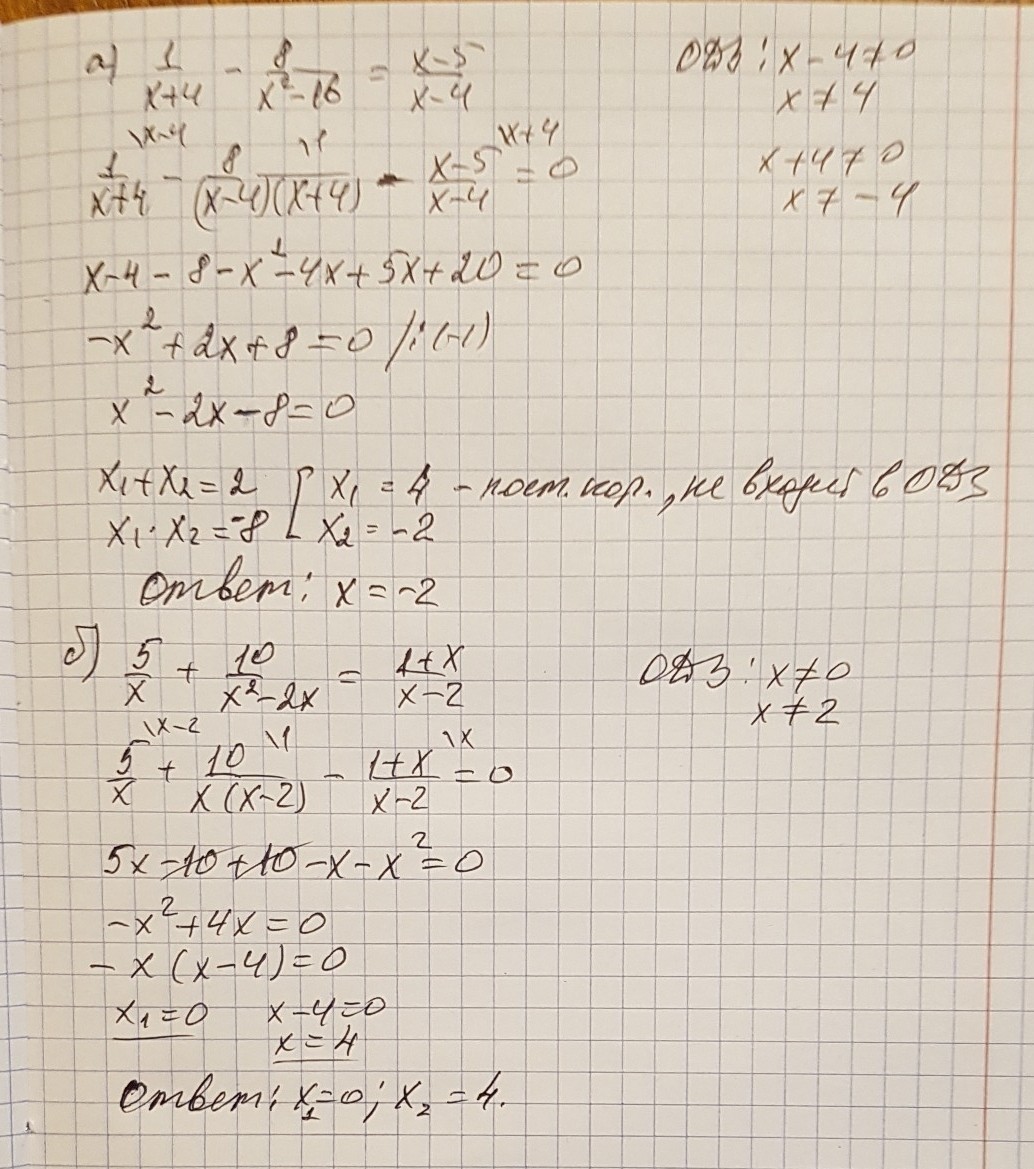 а) 1/(x+4) - 8/(x²-16) = (x-5)/(x-4)     ОДЗ: x-4≠0
x≠4
1/(x+4) \x-4 - 8/((x-4)(x+4)) \1 - (x-5)/(x-4) \x+4 = 0     x+4≠0
x≠-4
x-4-8-x²-4x+5x+20=0
-x²+2x+8=0 /:(-1)
x²-2x-8=0
x₁+x₂=2 [ x₁=4 - пост. кор., не входит в ОДЗ
x₁·x₂=-8 [ x₂=-2
Ответ: x=-2
б) 5/x + 10/(x²-2x) = (1+x)/(x-2)     ОДЗ: x≠0
x≠2
5/x \x-2 + 10/(x(x-2)) \1 - (1+x)/(x-2) \x = 0
5x-10+10-x-x²=0
-x²+4x=0
-x(x-4)=0
x₁=0     x-4=0
x=4
Ответ: x₁=0; x₂=4.